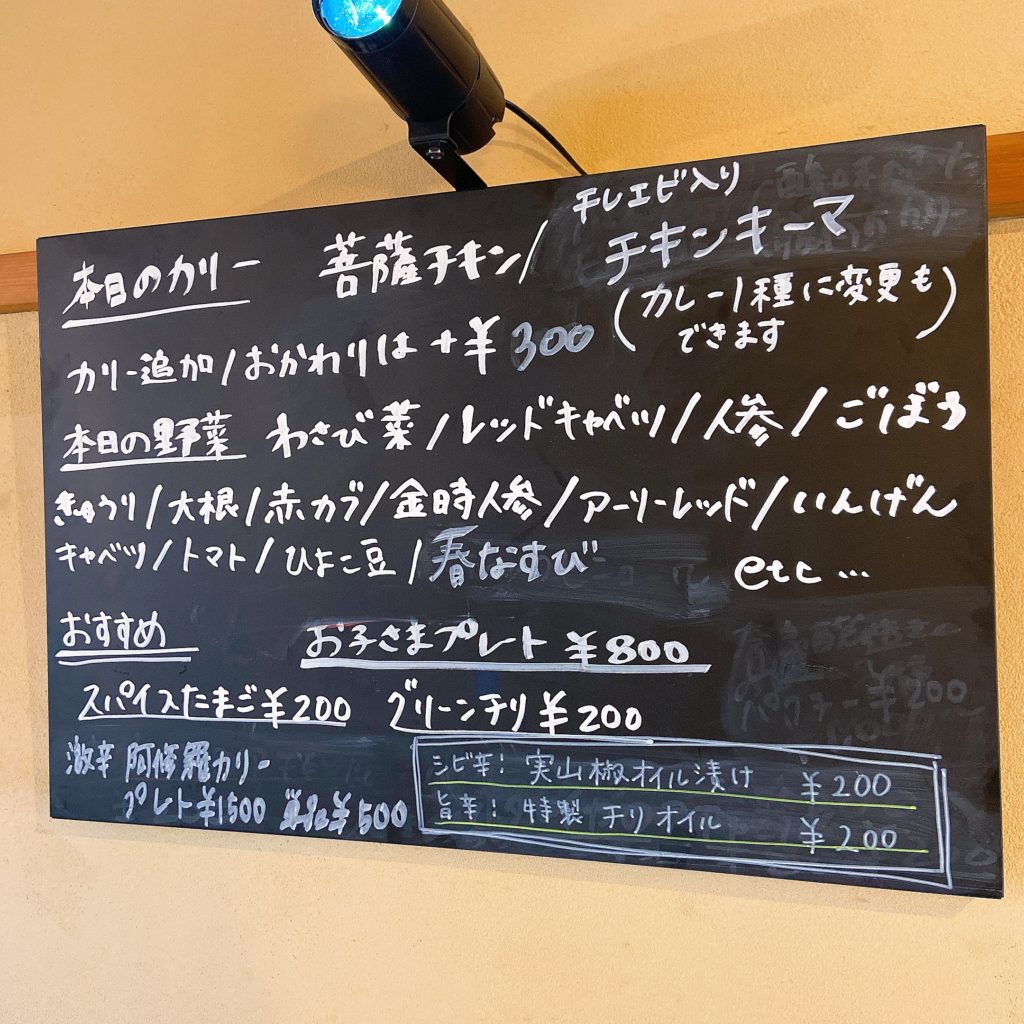 本日のカリー 菩薩チキン/干しエビ入り
チキンキーマ
(カレー1種に変更も
できます)
カリー追加/おかわりは+¥300
本日の野菜 わさび菜/レッドキャベツ/人参/ごぼう
きゅうり/大根/赤カブ/金時人参/アーリーレッド/いんげん
キャベツ/トマト/ひよこ豆/春なすび etc…
おすすめ お子さまプレート ¥800
スパイスたまご¥200 グリーンチリ¥200
激辛 阿修羅カリー
プレート¥1500 ¥500
シビ辛! 実山椒オイル漬け ¥200
旨辛! 特製 チリオイル ¥200